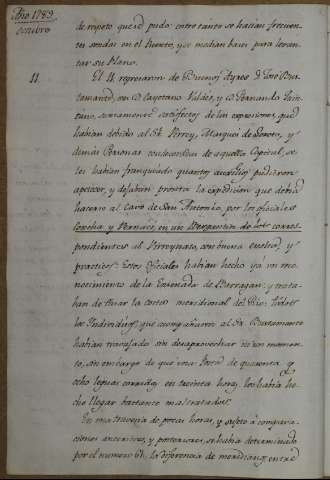 Año 1789
octubre
de respeto que se pudo: entre tanto se hacian frequen-
tes sondas en el Puerto, y se median bases para levan-
tar su Plano.
11. El 11 regresaron de Buenos Ayres Dn. José Bus-
tamante, con Dn. Cayetano Valdés, y Dn. Fernando Quin-
tano, sumamente satisfechos de las expresiones, que
habian debido al Sr. Virrey, Marques de Loreto, y
demás Personas condecoradas de aquella Capital; se
les habian franqueado quantos auxilios pudieron
apetecer, y dejaban pronta la expedicion que debia
hacerse al Cavo de San Antonio, por los oficiales
Concha, y Vernaci, en un Bergantin de los corres-
pondientes al Virreynato, con buena custodia y
practicos: Estos oficiales habian hecho yá un reco-
nocimiento de la Ensenada de Barragan; y trata-
ban de fixar la costa meridional del Rio: todos
los Individuos que acompañaron al Sr. Bustamante
habian trabajado sin desaprovechar ni un momen-
to, sin embargo de que una Posta de quarenta y
ocho leguas corridas en treinta horas, los habia he-
cho llegar bastante maltratados.
En una travesia de pocas horas, y sujeto á compara-
ciones anteriores, y posteriores, se habia determinado
por el numero 61, la diferencia de meridianos entre